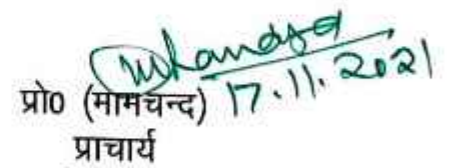 17.11.2021
प्रो0 (मामचन्द)
प्राचार्य